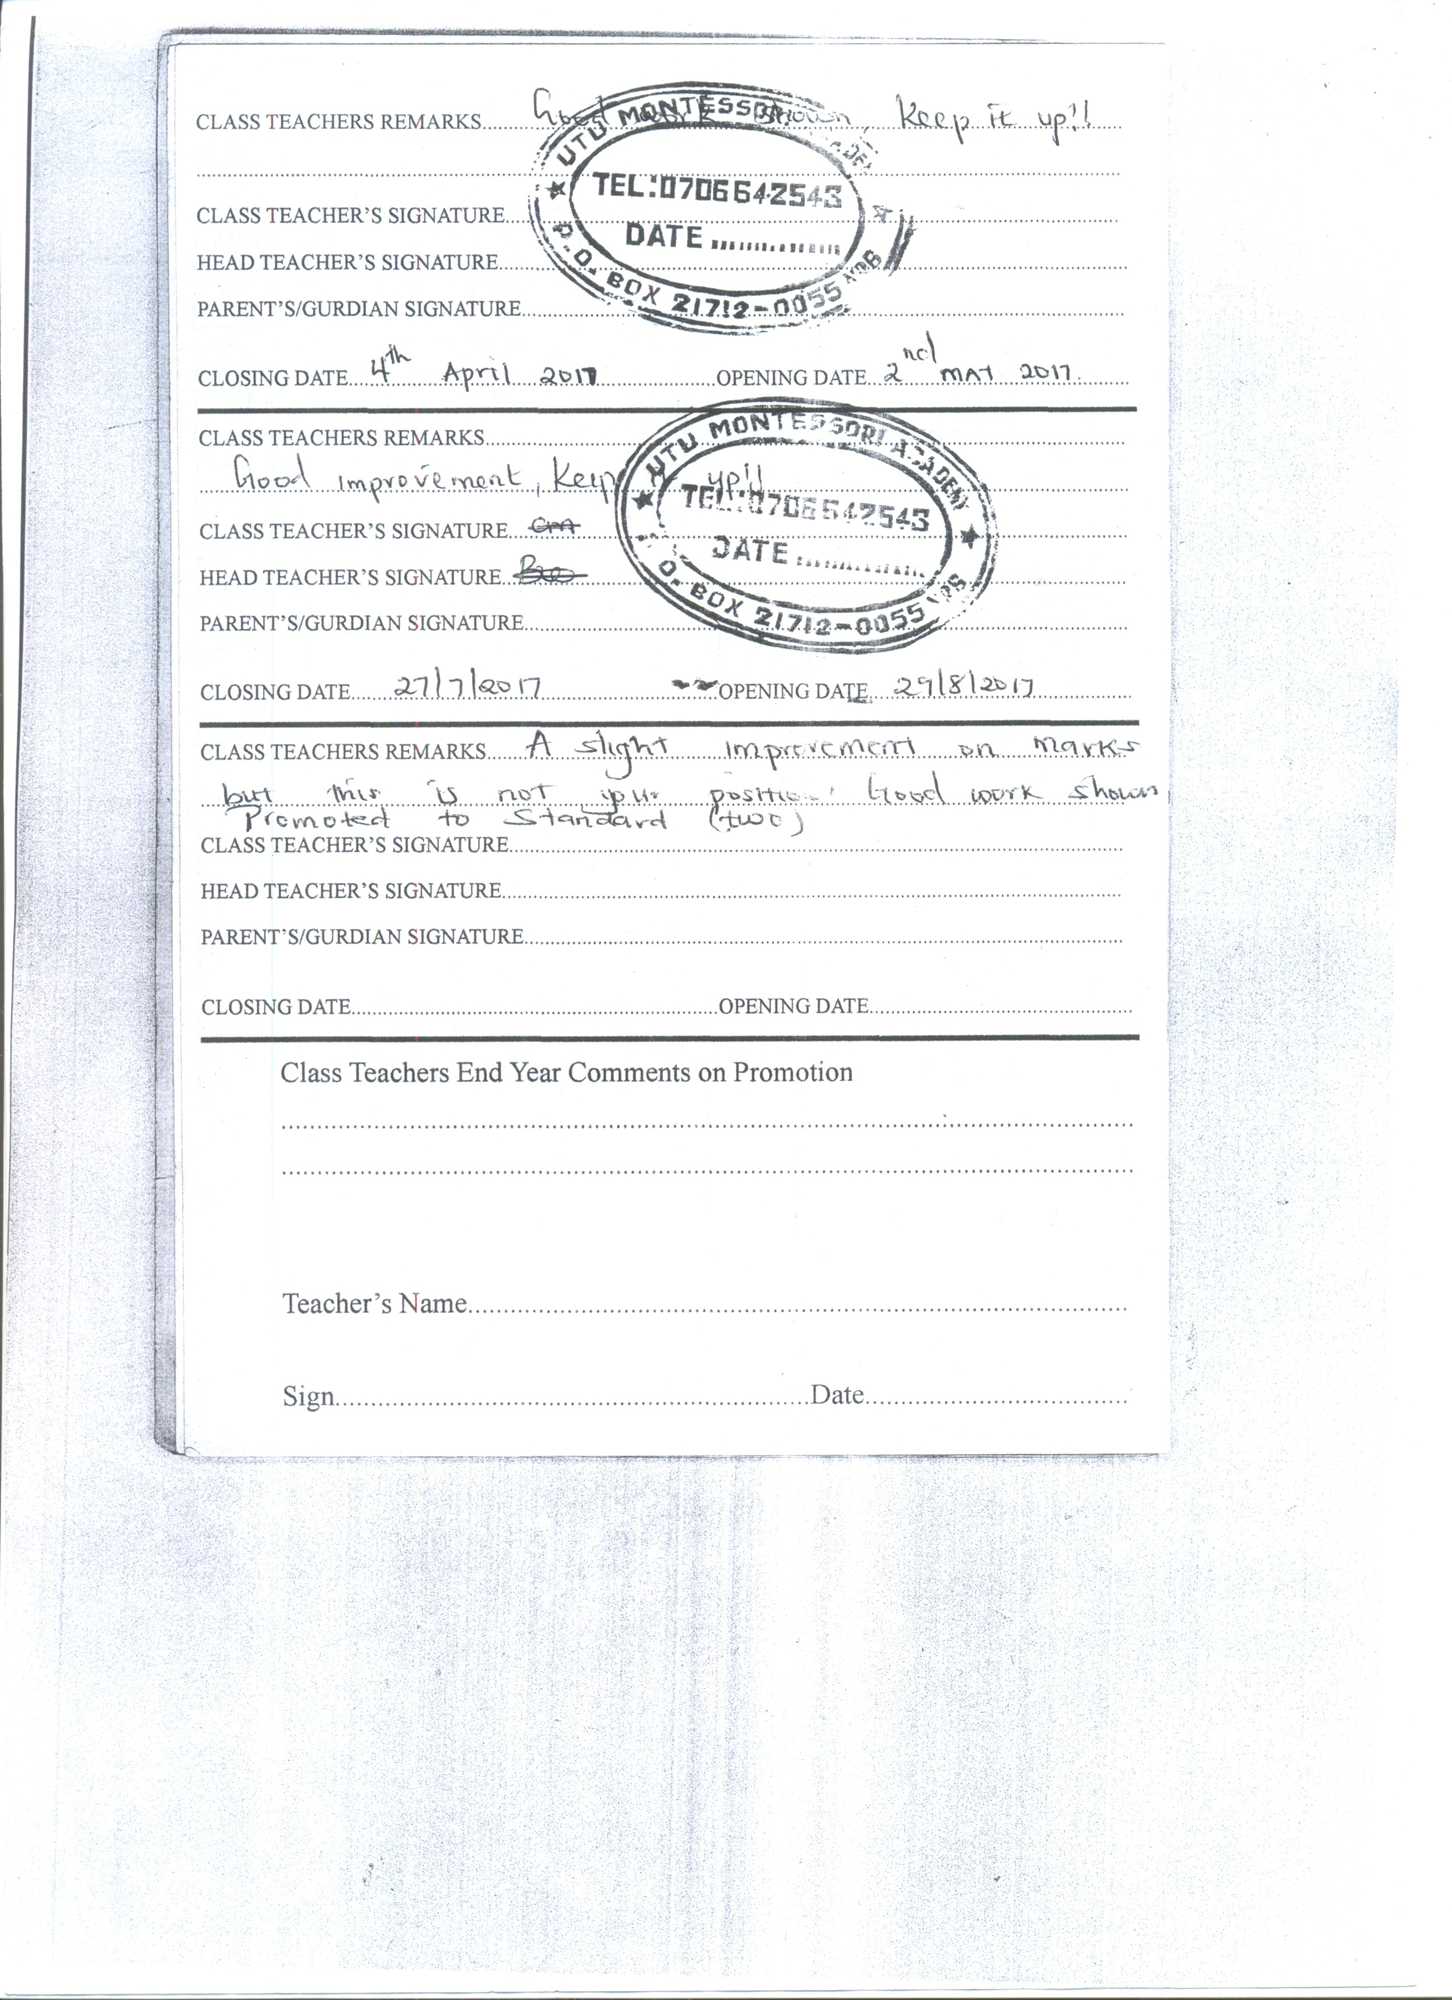 CLASS TEACHERS REMARKS Good work shown, Keep it up!!
UTU MONTESSORI ACADEMY
TEL:0706642543
DATE
P.O. BOX 21712-0055 NRB
CLASS TEACHER'S SIGNATURE
HEAD TEACHER'S SIGNATURE
PARENT'S/GURDIAN SIGNATURE
CLOSING DATE 4th April 2017 OPENING DATE 2nd MAY 2017
CLASS TEACHERS REMARKS
Good improvement, Keep it up!!
UTU MONTESSORI ACADEMY
TEL:0706642543
DATE
P.O. BOX 21712-0055 NRB
CLASS TEACHER'S SIGNATURE
HEAD TEACHER'S SIGNATURE
PARENT'S/GURDIAN SIGNATURE
CLOSING DATE 27/7/2017 OPENING DATE 29/8/2017
CLASS TEACHERS REMARKS A slight improvement on marks
but this is not your position. Good work shown,
Promoted to Standard (two)
CLASS TEACHER'S SIGNATURE
HEAD TEACHER'S SIGNATURE
PARENT'S/GURDIAN SIGNATURE
CLOSING DATE OPENING DATE
Class Teachers End Year Comments on Promotion
Teacher's Name
Sign Date